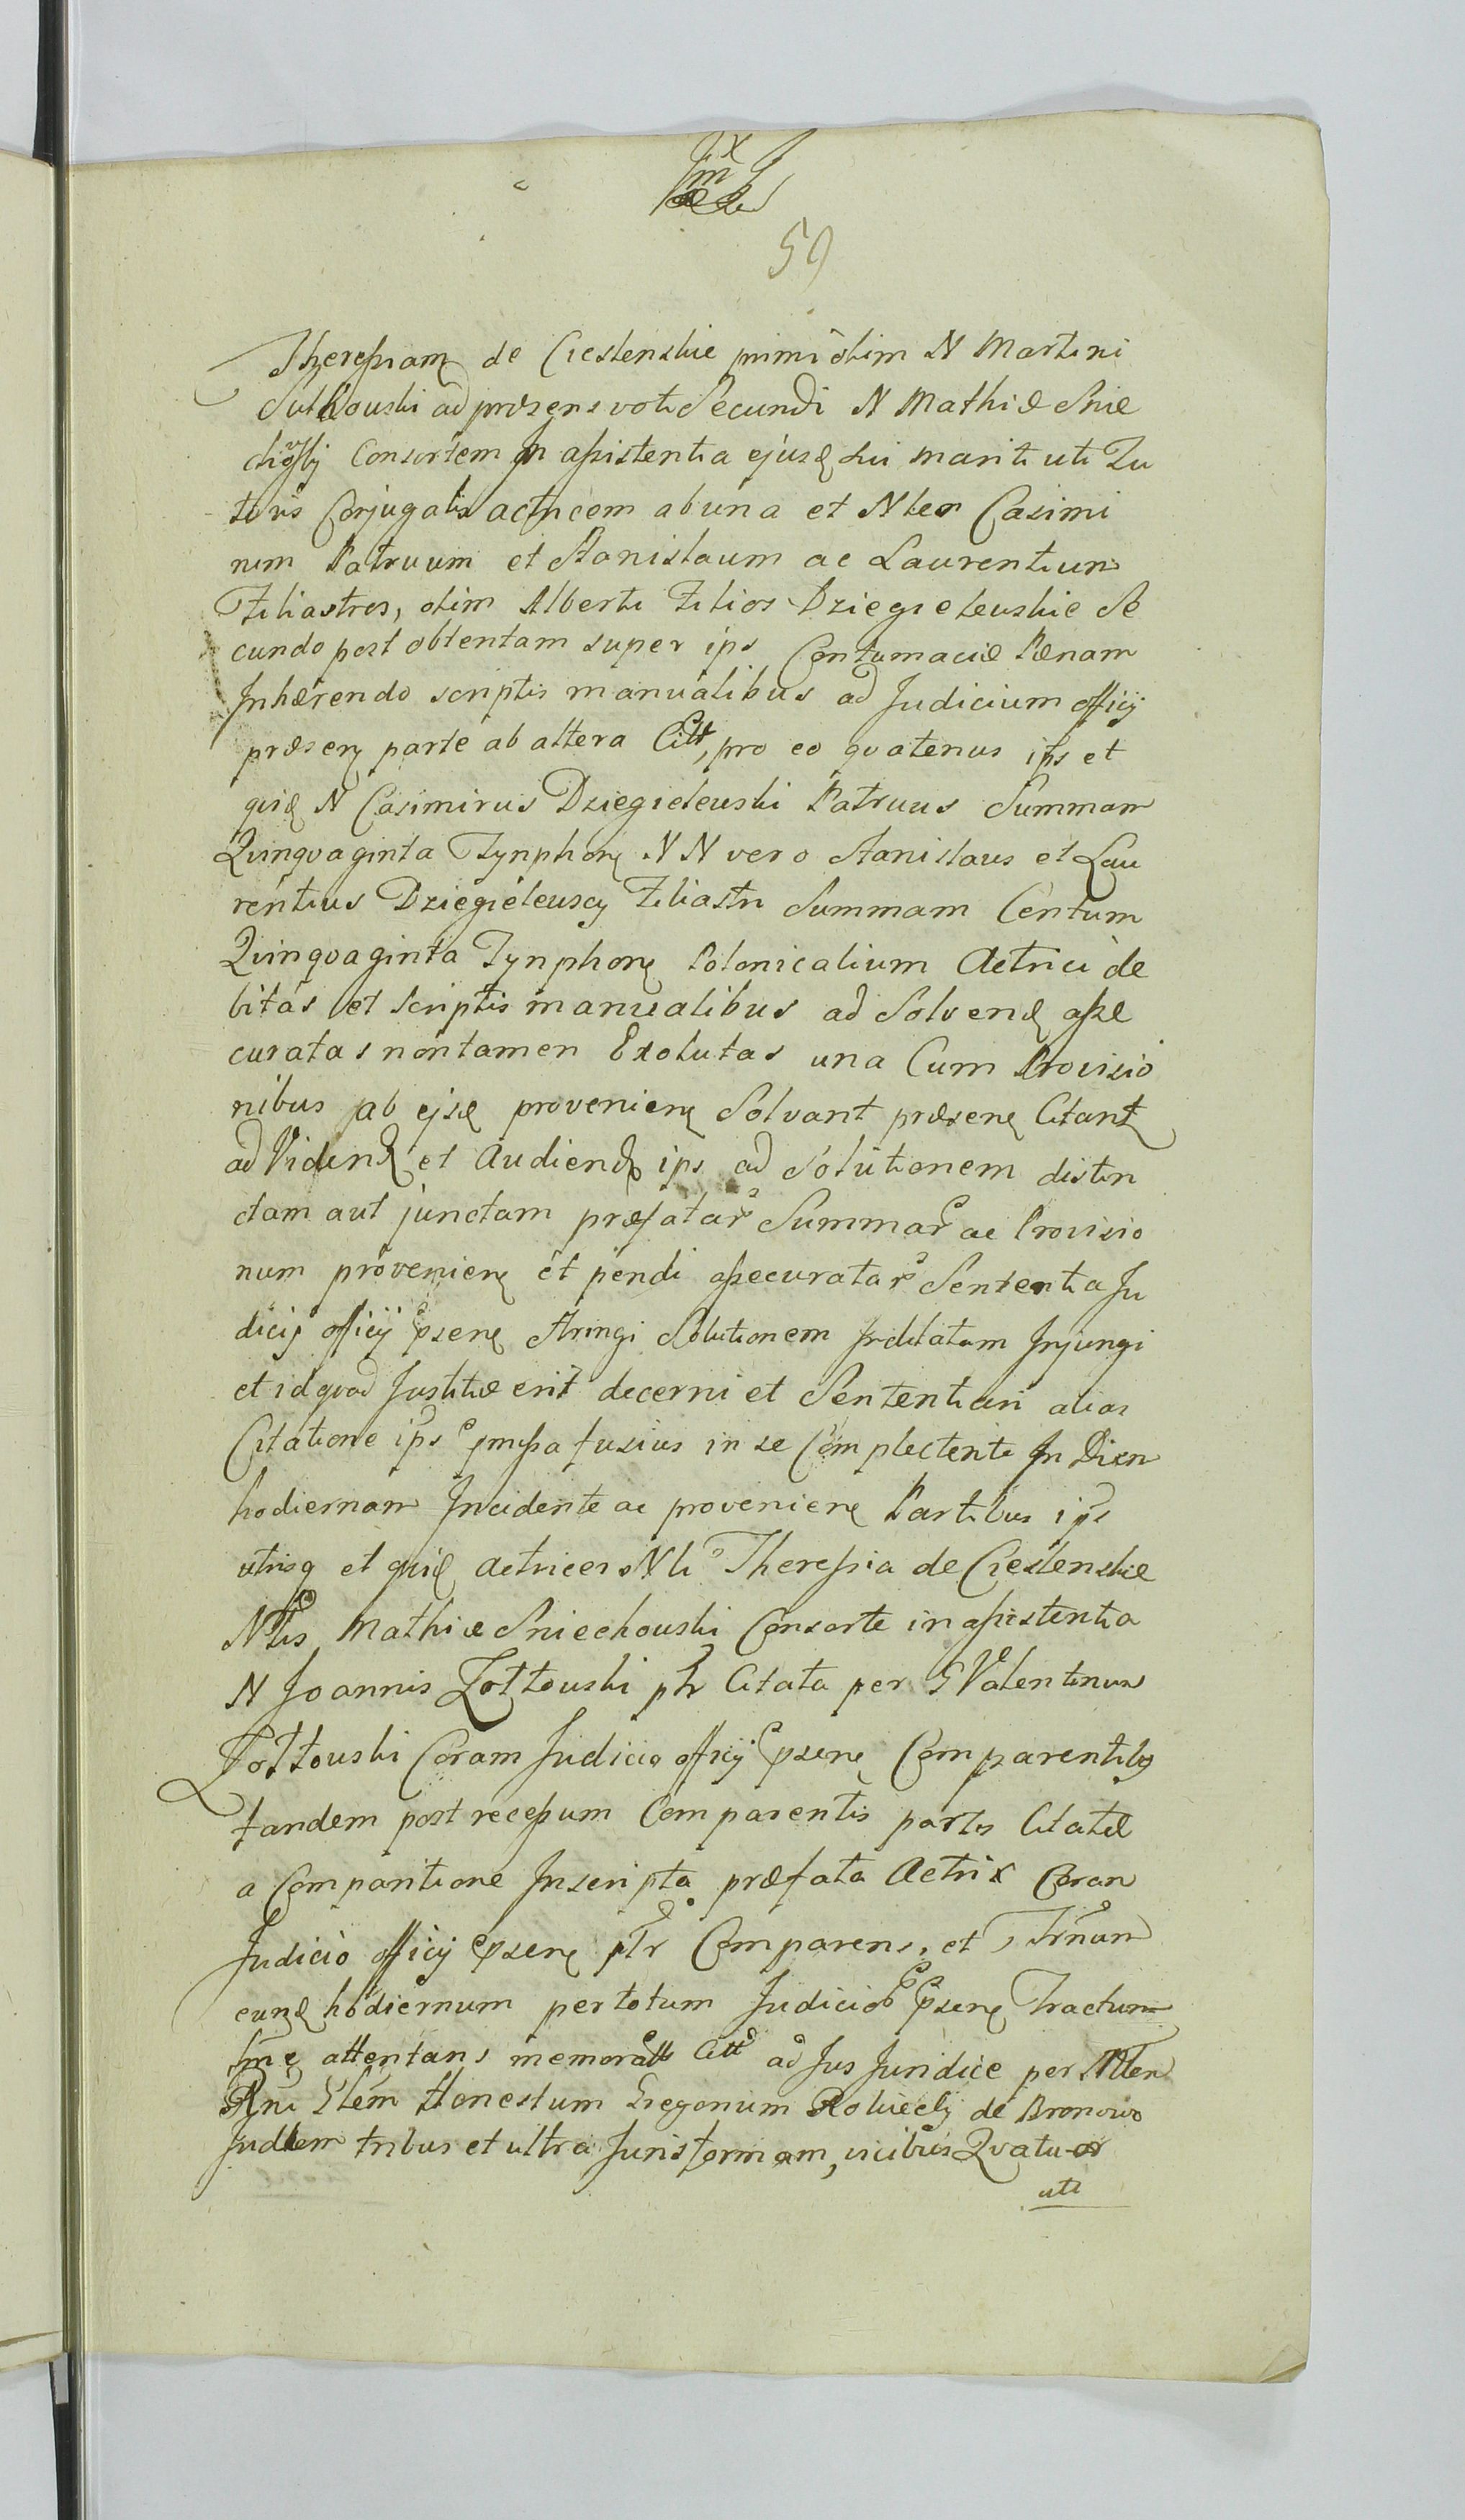 59
Theressiam de Cieslenskie primi olim N Martini
Sutkouski ad præsens voti Secundi N Mathiæ Snie
chovskij Consortem in assistentia ejusd sui mariti uti Tu
toris Conjugalis actricem ab una et Nbles Casimi
rum Patruum et Stanislaum ac Laurentium
Filiastros, olim Alberti Filios Dziegieleuskie Se
cundo post obtentam super ips Contumaciæ Pænam
Inhærendo scriptis manualibus ad Judicium officij
præsen parte ab altera Citt, pro eo quatenus ips et
quid N Casimirus Dziegieleuski Patruus Summam
Qvinqvaginta Tynphon N N vero Stanislaus et Lau
rentius Dziegieleuscy Filiastri Summam Centum
Qvinqvaginta Tynphon Polonicalium Actrici de
bitas et scriptis manualibus ad Solvend asse
curatas non tamen Exolutas una Cum Provisio
nibus ab ejsd provenien Solvant præsen Citant
ad Vidend et Audiend ips ad Solutionem distin
ctam aut junctam præfatar Summar ac Provisio
num provenien et pendi assecuratar Sententia Ju
dicij officij psen Stringi Solutionem Irditatam Injungi
et id qvod Justitiæ erit decerni et Sententiari alias
Citatione ips pmissa fusius in se Complectenti In Diem
hodiernam Incidente ac provenien Partibus ips
utrisq et quid actrices Nli Theressia de Cieslenskie
Nblis Mathiæ Sniechouski Consorte in assistentia
N Joannis Zottouski ptr Citata per G Valentinum
Zottouski Coram Judicio officij psen Comparentibg
tandem post recessum Comparentis partis Citatæ
a Comparitione Inscripta præfata Actrix Coram
Judicio officij psen ptr Comparens, et Trnum
eund hodiernum per totum Judicior psen Tractum
attentans memoratt Citt ad Jus Juridice per Mlen
Rni Glem Honestum Gregorium Roliecky de Bronowo
Judlem tribus et ultra Juris formam, vicibus Qvatuor
uti